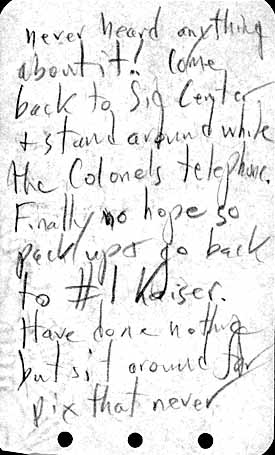 never heard anything
about it! Come
back to Sig Center
+ stand around while
the Colonels telephone.
Finally no hope so
pack up & go back
to #1 Kaiser.
Have done nothing
but sit around for
pix that never